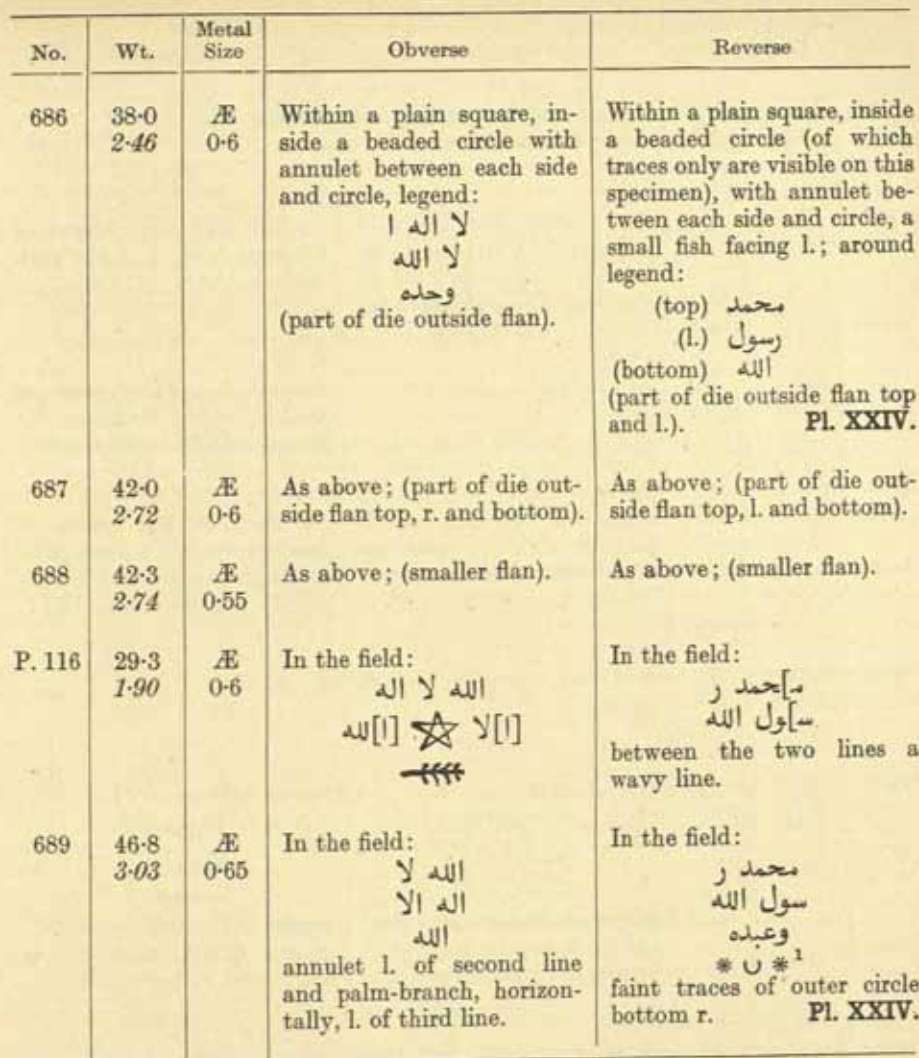 No. Wt. Metal Size Obverse Reverse
686 38·0 Æ
2·46 0·6
Within a plain square, in-
side a beaded circle with
annulet between each side
and circle, legend:
لا اله ا
لا الله
وحده
(part of die outside flan).
Within a plain square, inside
a beaded circle (of which
traces only are visible on this
specimen), with annulet be-
tween each side and circle, a
small fish facing l.; around
legend:
(top) محمد
(l.) رسول
(bottom) الله
(part of die outside flan top
and l.). Pl. XXIV.
687 42·0 Æ
2·72 0·6
As above; (part of die out-
side flan top, r. and bottom).
As above; (part of die out-
side flan top, l. and bottom).
688 42·3 Æ
2·74 0·55
As above; (smaller flan).
As above; (smaller flan).
P. 116 29·3 Æ
1·90 0·6
In the field:
الله لا اله
[ا]لا [ا]لله
In the field:
مـ]حمد ر
سـ]ول الله
between the two lines a
wavy line.
689 46·8 Æ
3·03 0·65
In the field:
الله لا
اله الا
الله
annulet l. of second line
and palm-branch, horizon-
tally, l. of third line.
In the field:
محمد ر
سول الله
وعبده
* ∪ * 1
faint traces of outer circle
bottom r. Pl. XXIV.